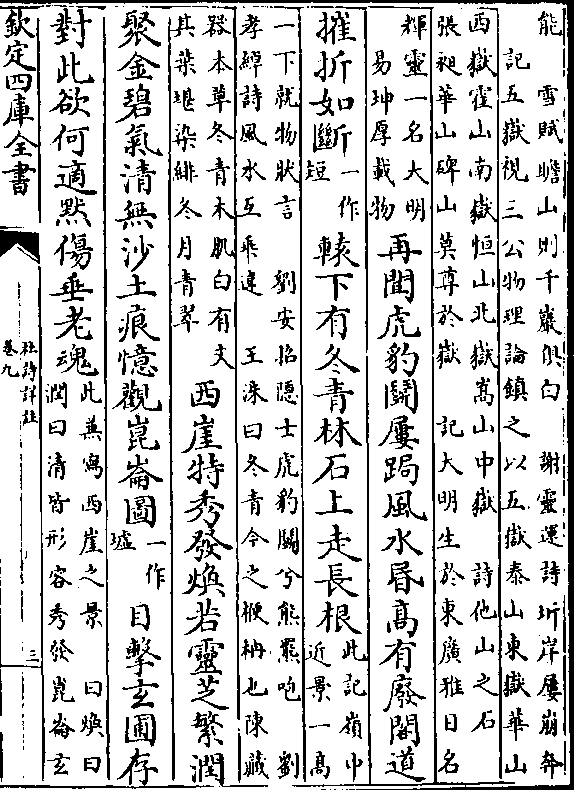 能　雪賦瞻山則千巖俱白　謝靈運詩圻岸屢崩奔
記五嶽視三公物理論鎮之以五嶽泰山東嶽華山
西嶽霍山南嶽恒山北嶽嵩山中嶽　詩他山之石
張昶華山碑山莫尊於嶽　記大明生於東廣雅日名
耀靈一名大明
易坤厚載物
再聞虎豹鬬屢跼風水昬高有廢閣道
摧折如斷
一作
短
轅下有冬青林石上走長根
此記嶺中
近景一高
一下就物狀言　劉安招隠士虎豹鬬兮熊羆咆　劉
孝綽詩風水互乘違　王洙曰冬青今之梗枏也陳藏
器本草冬青木肌白有文
其葉堪染緋冬月青翠
西崖特秀發煥若靈芝繁潤
聚金碧氣清無沙土痕憶觀崑崙圖
一作
墟
目擊玄圃存
對此欲何適黙傷垂老魂
此兼寫西崖之景　曰煥曰
潤曰清皆形容秀發崑崙玄
欽定四庫全書
杜詩詳註
卷九
三